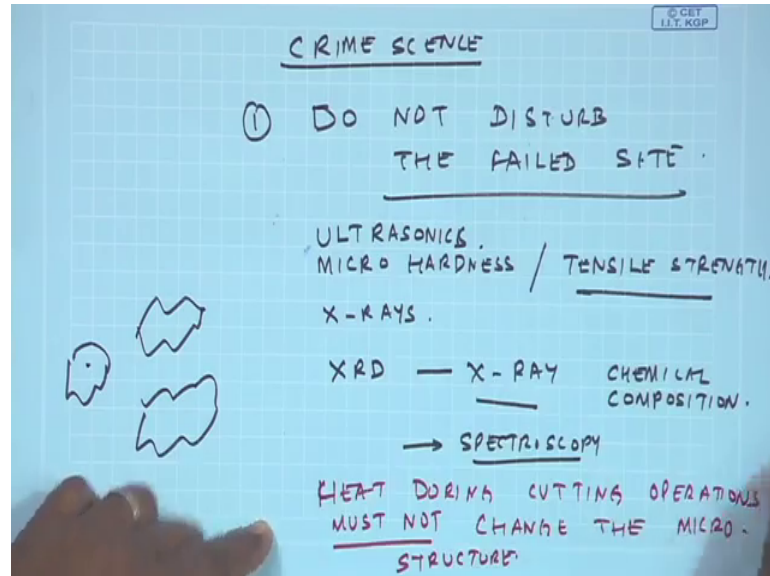 © CET
I.I.T. KGP
CRIME SCENLE
① DO NOT DISTURB
THE FAILED SITE.
ULTRASONICS.
MICRO HARDNESS / TENSILE STRENGTH.
X-RAYS.
XRD — X-RAY CHEMICAL
COMPOSITION.
→ SPECTRISCOPY
HEAT DURING CUTTING OPERATIONS
MUST NOT CHANGE THE MICRO-
STRUCTURE.